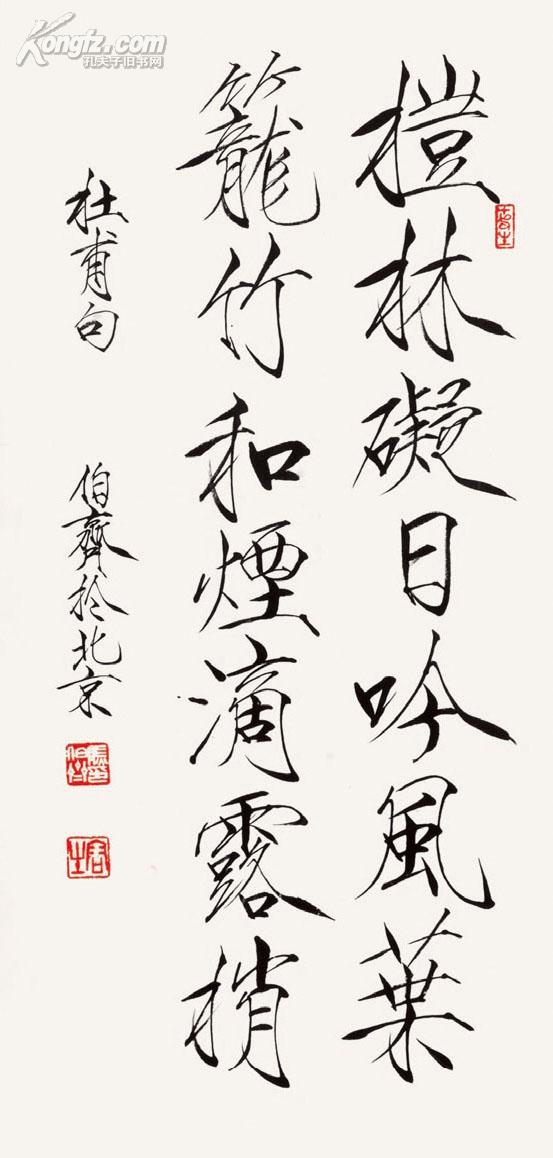 Kongfz.com
孔夫子旧书网
榿林礙日吟風葉
籠竹和煙滴露梢
杜甫句
伯齊於北京